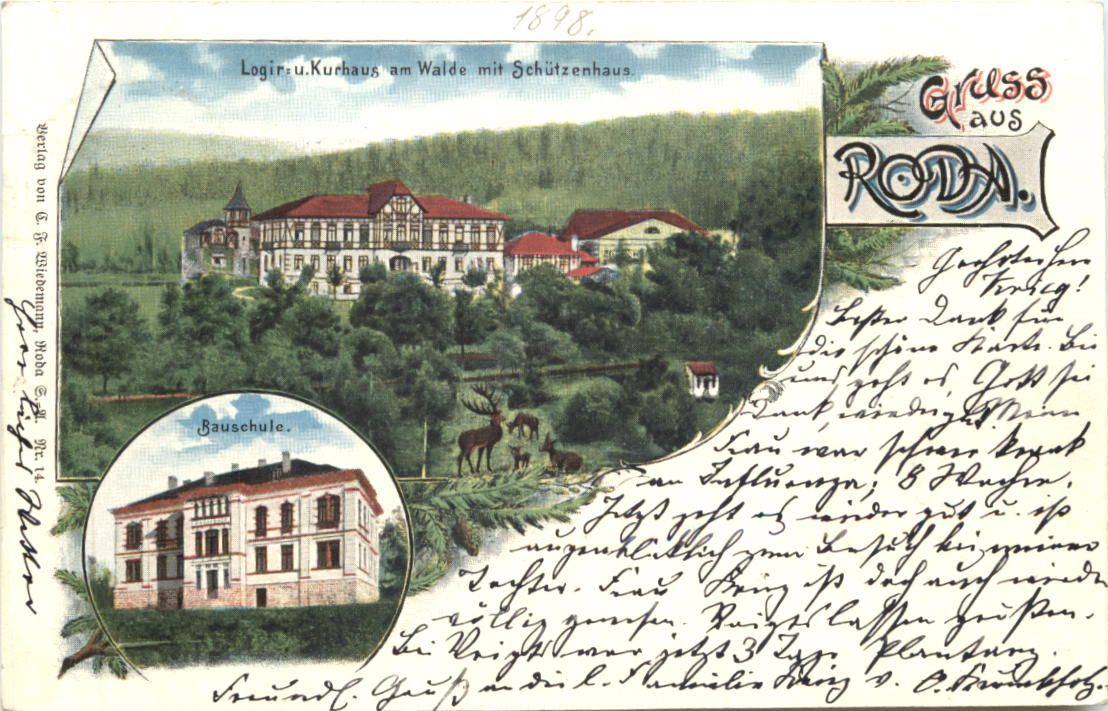 1898.
Logir- u. Kurhaus am Walde mit Schützenhaus.
Gruss
aus
RODA.
Bauschule.
Verlag von C. F. Wiedemann, Roda S.-A. Nr. 14.
Geehrter Herr
Krieg!
Besten Dank für
die schöne Karte. Bei
uns geht es Gott sei
Dank, wieder gut. Meine
Frau war schwer krank
an Influenza, 8 Wochen.
Jetzt geht es wieder gut u. ist
augenblicklich zum Besuch bei meiner
Tochter. Frau ist doch auch wieder
völlig genesen. Voigts lassen grüßen.
Bei Voigts war jetzt 3 Tage
Freundl. Gruß an die l. Familie v. O. Krumbholz.